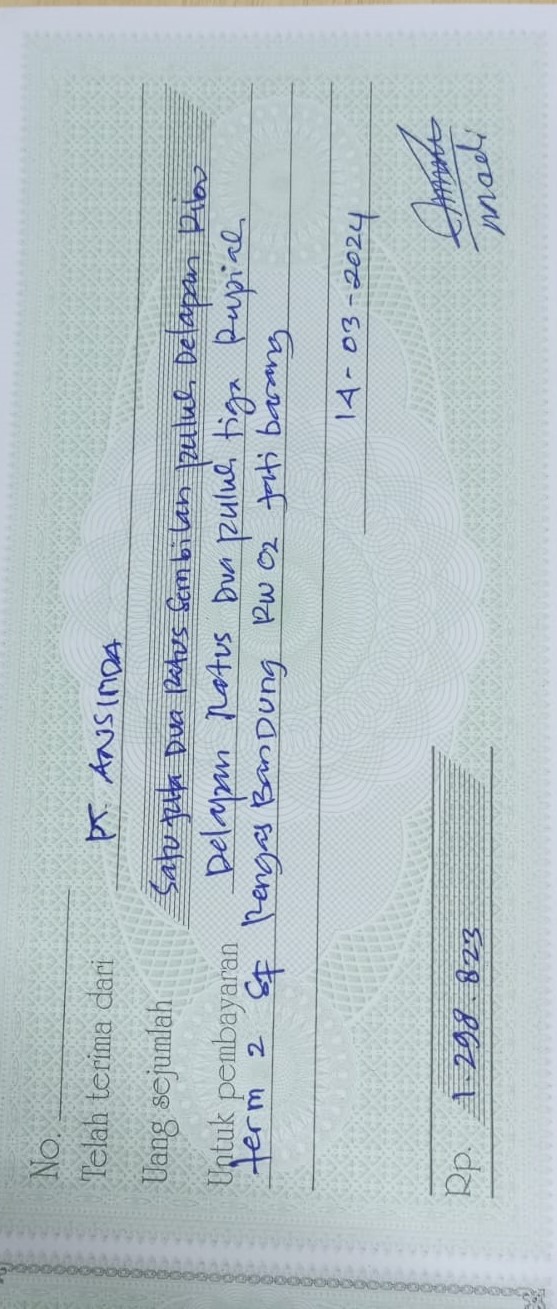 No.
Telah terima dari PT. ANSINDA
Uang sejumlah Satu juta Dua Ratus Sembilan puluh Delapan Ribu
Untuk pembayaran Delapan Ratus Dua puluh tiga Rupiah
term 2 SF Rengas BanDung RW 02 jati barang
14-03-2024
Rp. 1.298.823
madi